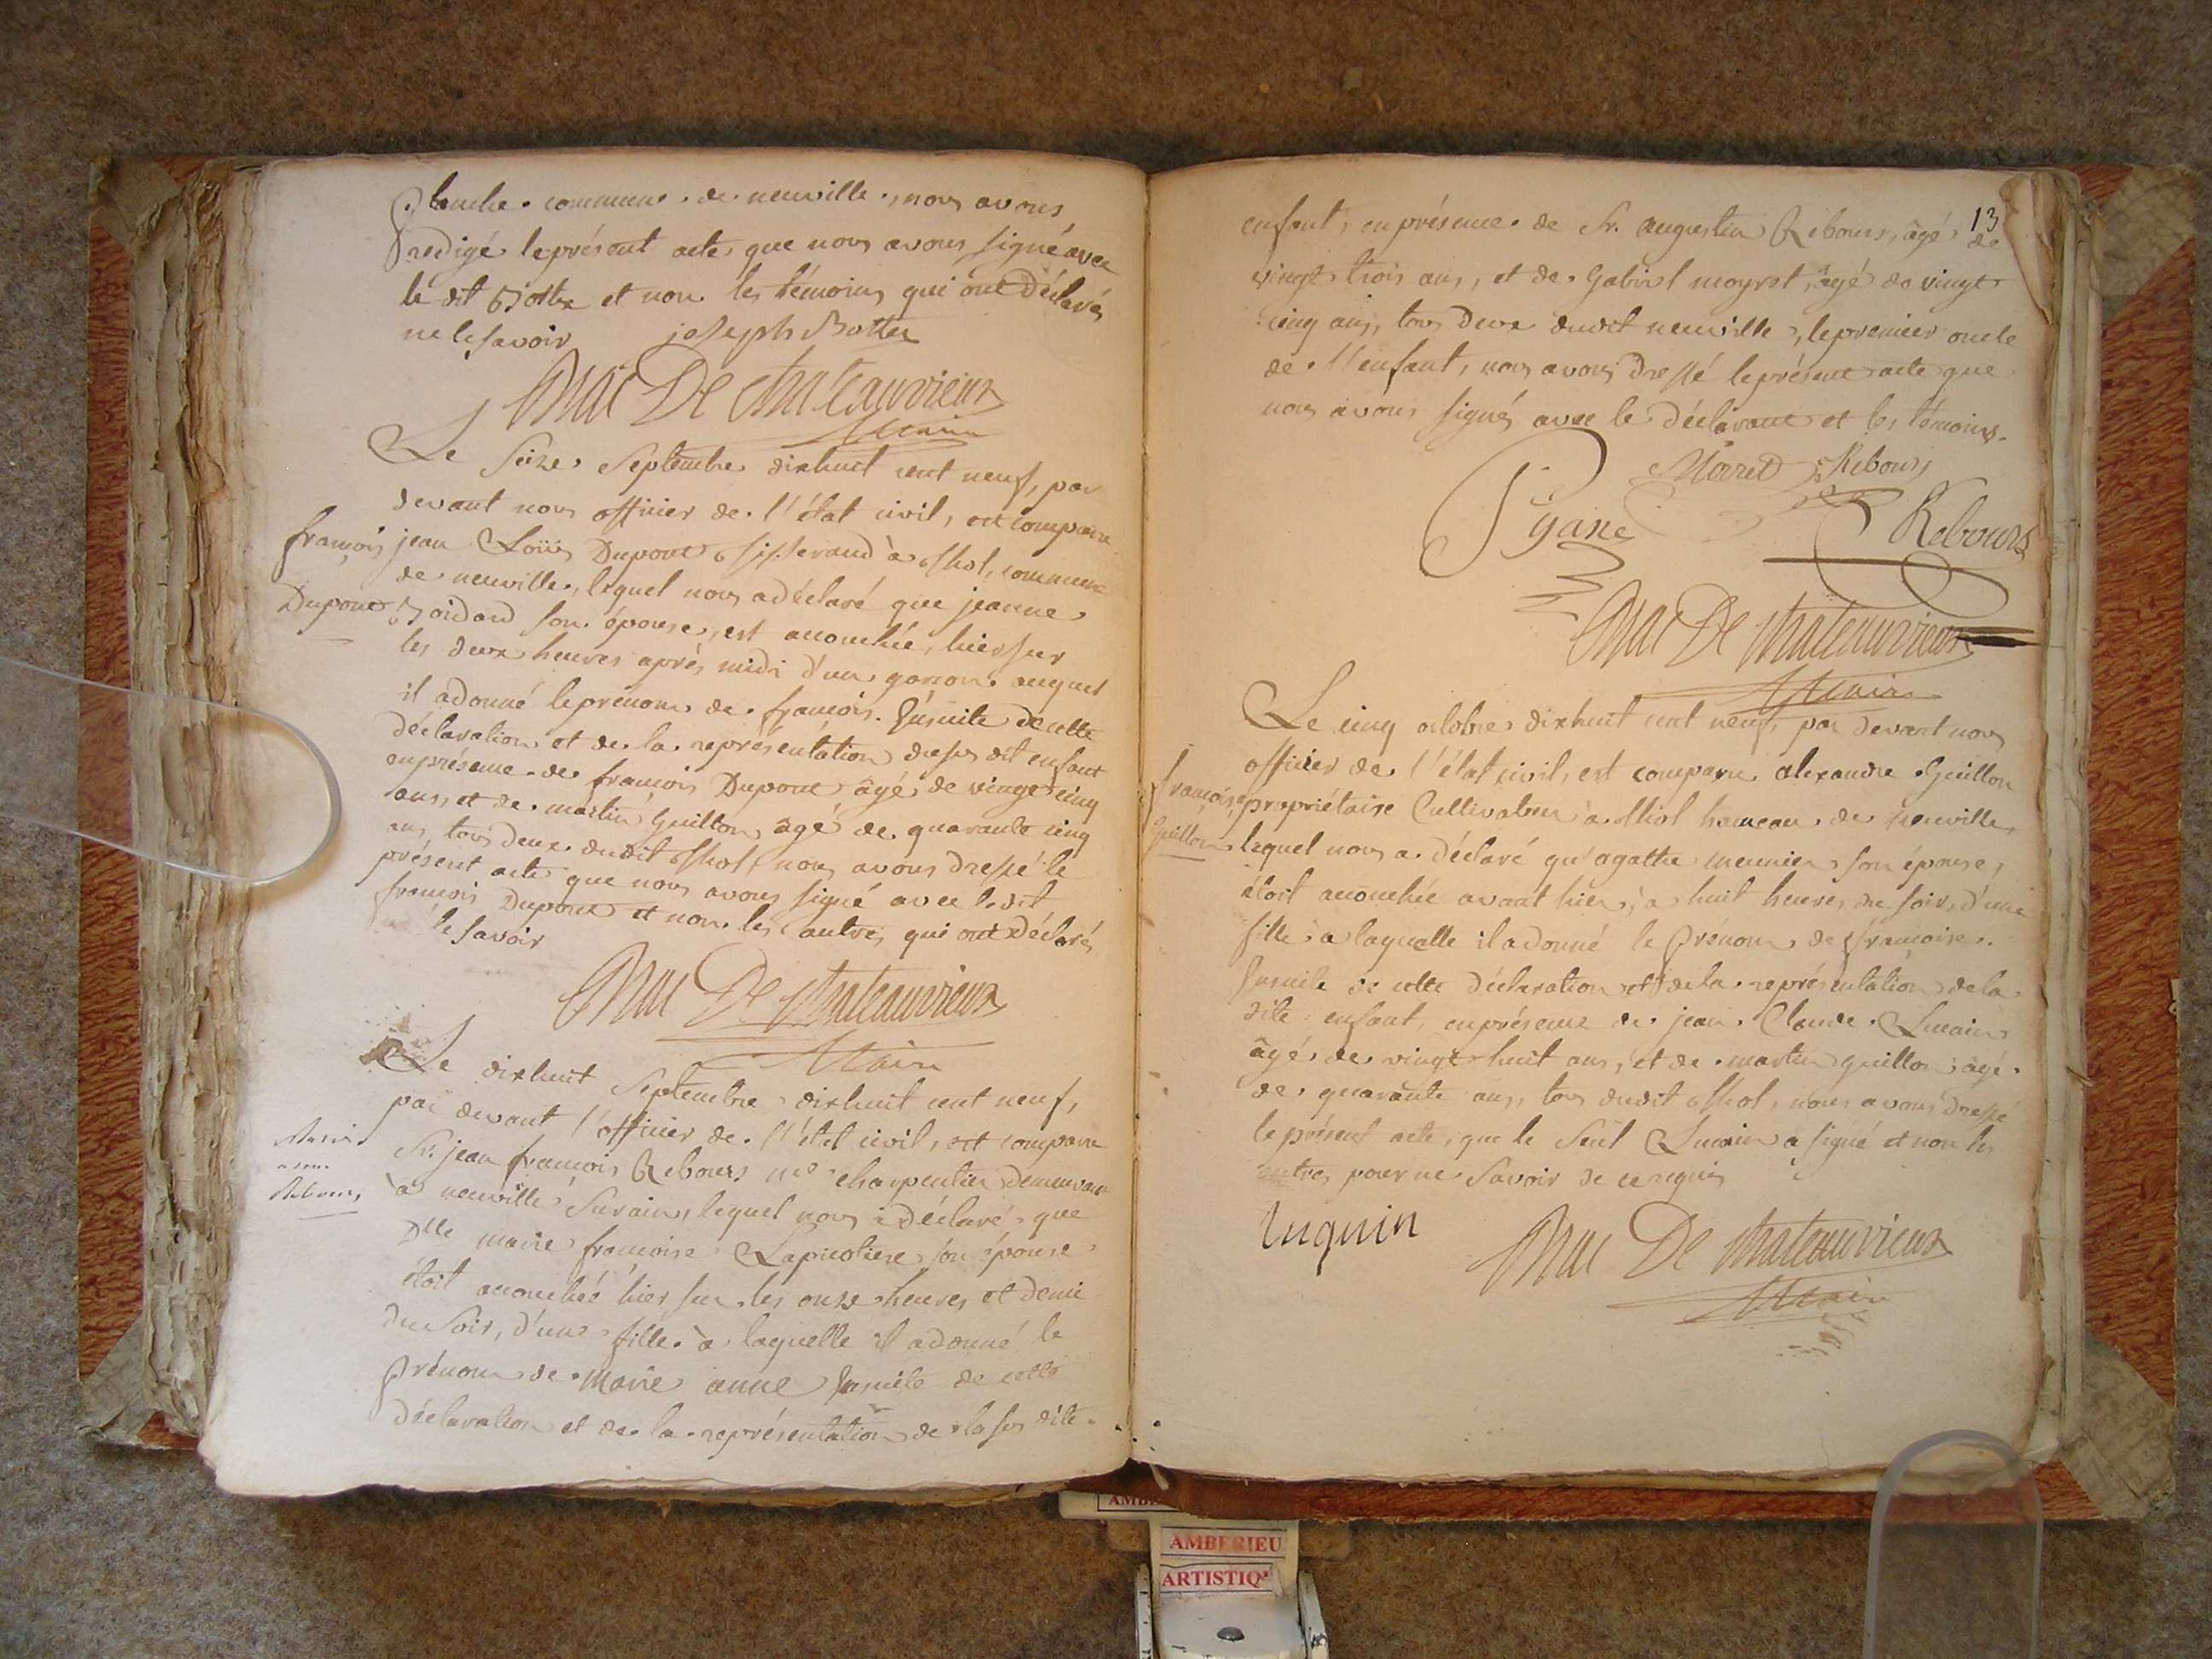 planche commune de neuville, nous avons
redigé le présent acte que nous avons signé avec
le dit Bottex et non les témoins qui ont déclarés
ne le savoir joseph Bottex
Mac De chateauvieux
Maire
Le Seize Septembre dixhuit cent neuf, par
devant nous officier de l'état civil, est comparu
françois jean Loüis Dupont tisserand à thol, commune
de neuville, lequel nous a déclaré que jeanne
Dupont Boidard son épouse, est accouchée, hier sur
les deux heures après midi d'un garson auquel
il a donné le prénom de françois. Ensuite de cette
déclaration et de la représentation du sus dit enfant
en présence de françois Dupont âgé de vingt cinq
ans, et de martin Guillon âgé de quarante cinq
ans, tous deux dudit thol, nous avons dressé le
présent acte que nous avons signé avec le dit
françois Dupont et non les autres qui ont déclarés
le savoir
Mac De chateauvieux
Maire
Le dixhuit Septembre dixhuit cent neuf,
par devant l'officier de l'état civil, est comparu
Marie Sr. jean françois Rebours me charpentier demeurant
anne
Rebours à neuville Surain, lequel nous a déclaré que
Dlle marie françoise son épouse
étoit accouchée hier sur les onze heures et demie
du Soir, d'une fille à laquelle il a donné le
prénom de Marie anne Ensuite de cette
déclaration et de la représentation de la sus dite
13
enfant, en présence de Sr. augustin Rebours, âgé de
vingt trois ans, et de Gabriel moyret, âgé de vingt
cinq ans, tous deux dudit neuville, le premier oncle
de l'enfant, nous avons dressé le présent acte que
nous avons signés avec le déclarant et les témoins.
Rebours
Rebours
Mac De chateauvieux
Maire
Le cinq octobre dixhuit cent neuf, par devant nous
officier de l'état civil, est comparu alexandre Guillon
françoise propriétaire Cultivateur à thol hameau de neuville,
Guillon lequel nous a déclaré qu'agathe meunier son épouse,
étoit accouchée avant hier, à huit heures du soir, d'une
fille à laquelle il a donné le prénom de françoise.
Ensuite de cette déclaration et de la représentation de la
dite enfant, en présence de jean Claude
âgé de vingt huit ans, et de martin guillon âgé
de quarante ans, tous dudit thol, nous avons dressé
le présent acte, que le Seul a signé et non les
autres pour ne Savoir de ce requis
luquin Mac De chateauvieux
Maire
AMBERIEU
ARTISTIQ